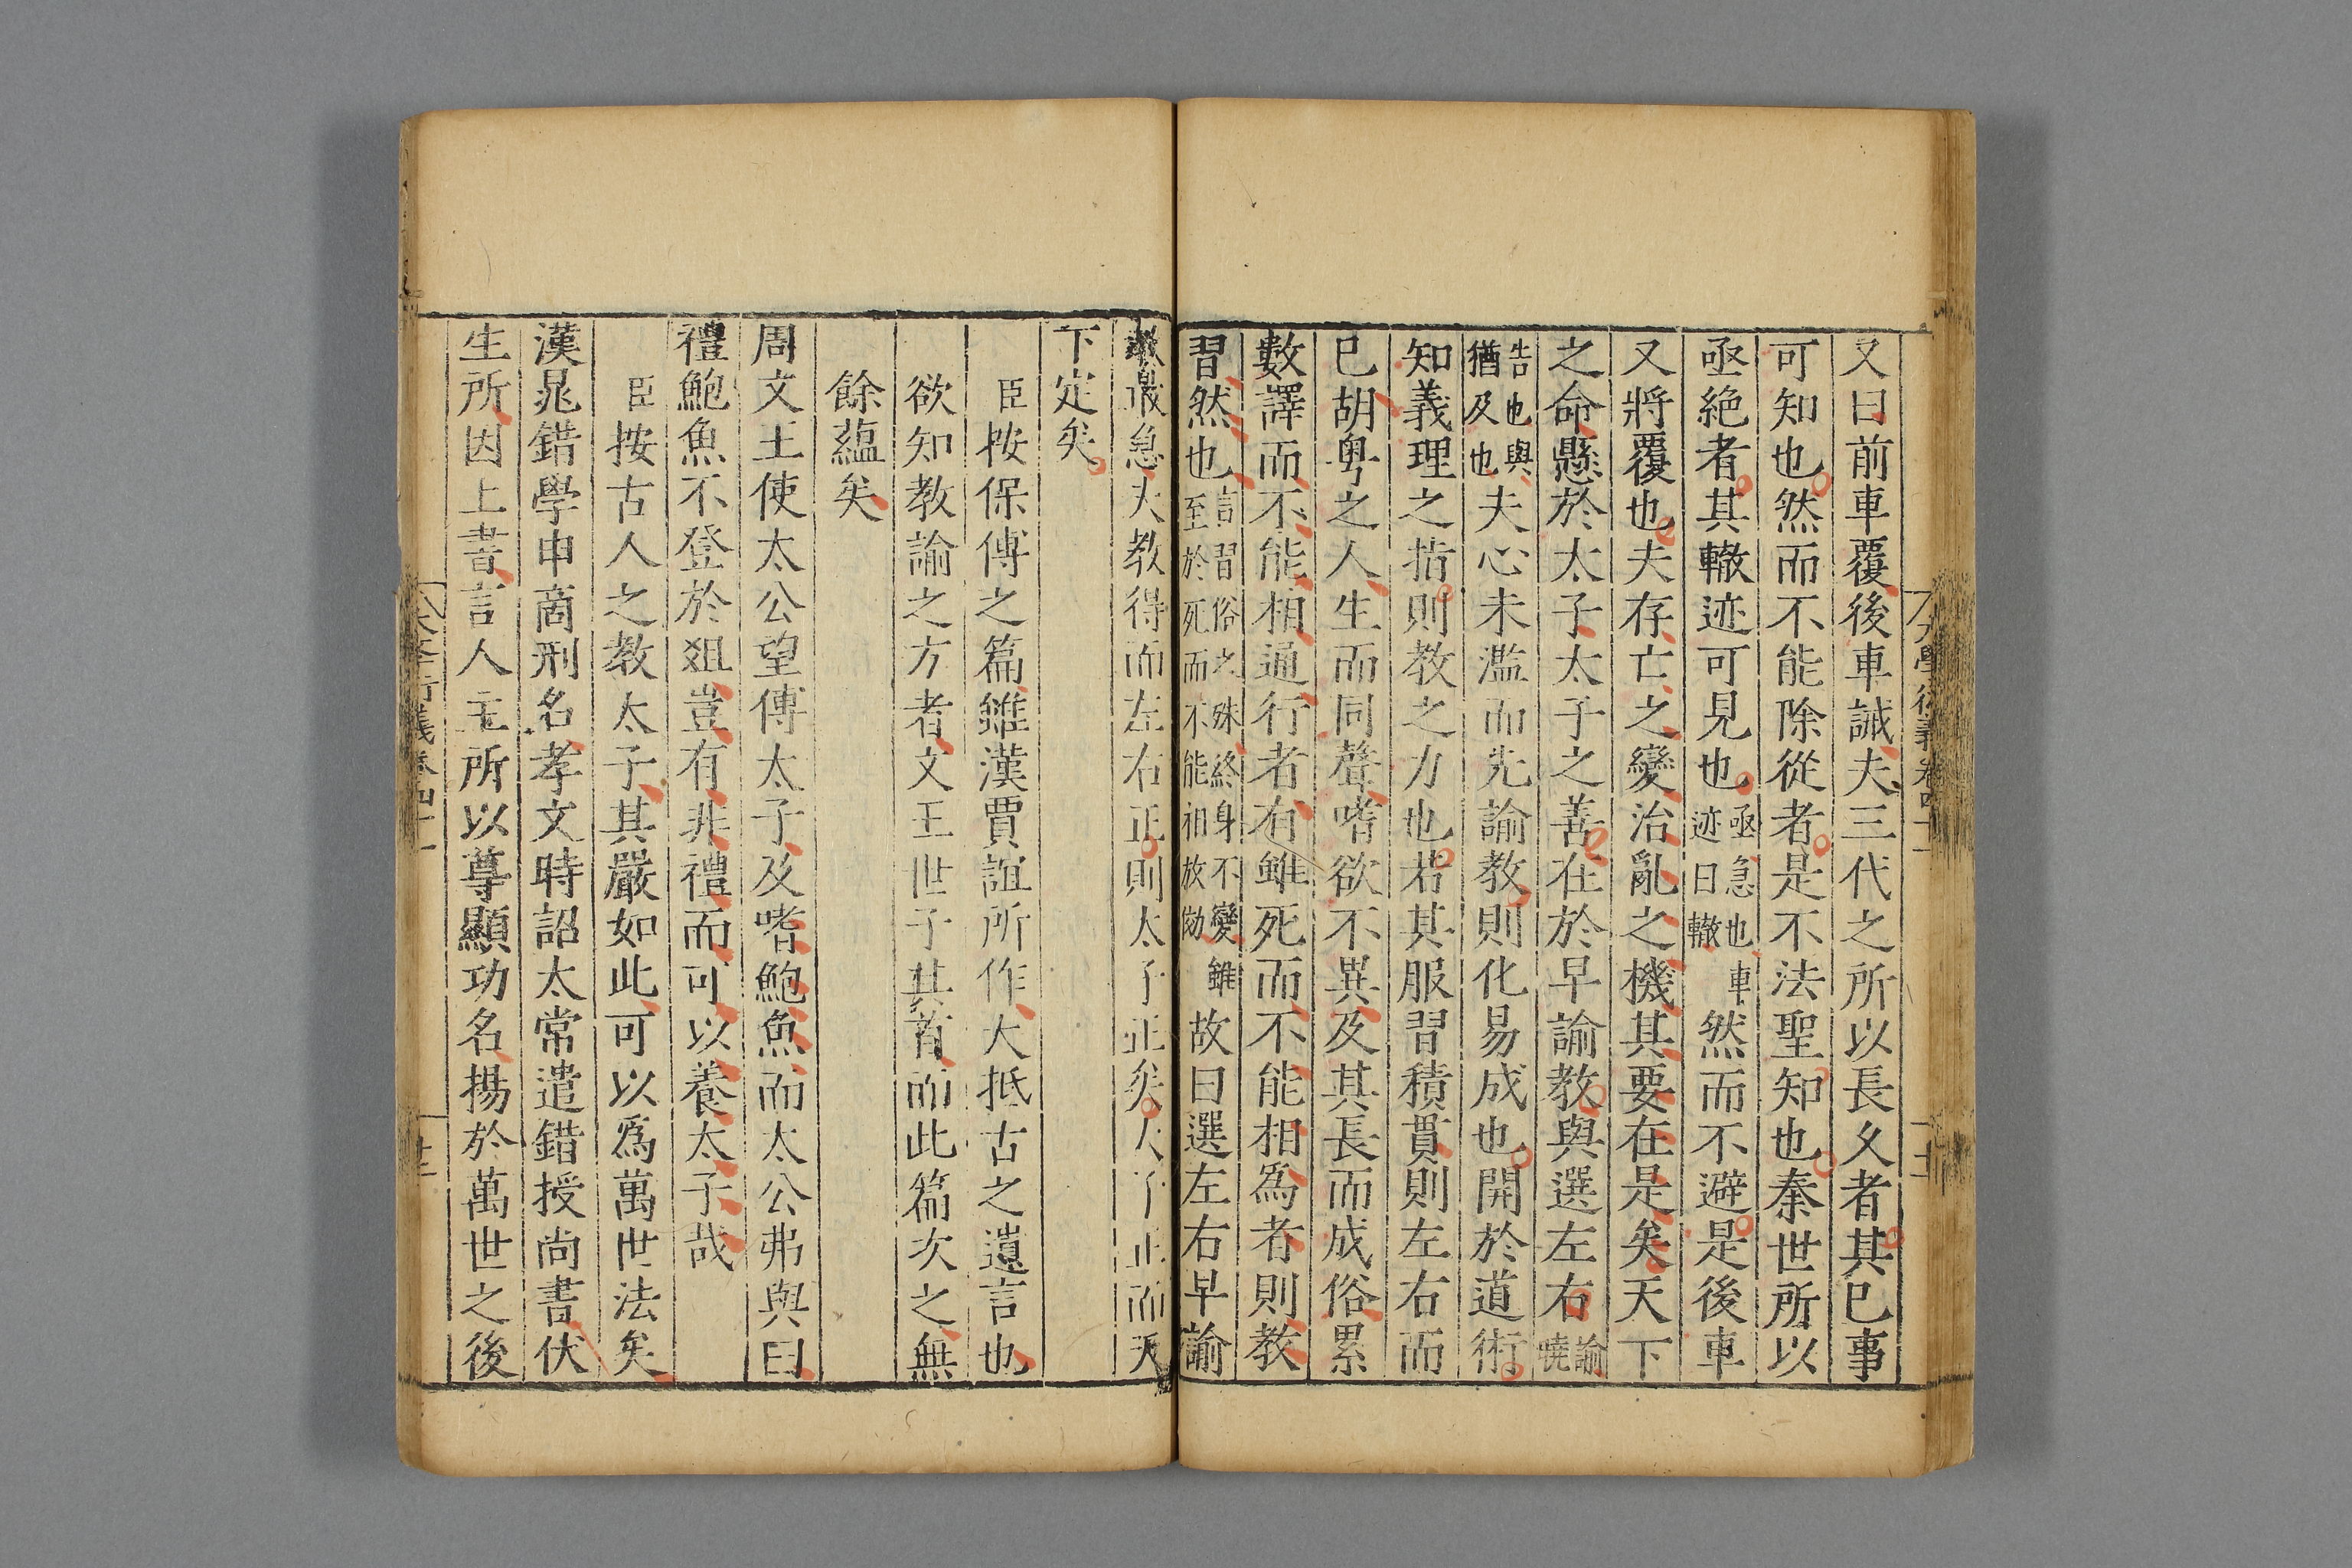 又曰前車覆後車誡夫三代之所以長久者其已事
可知也然而不能除從者是不法聖知也秦世所以
亟絕者其轍迹可見也亟急也車迹曰轍然而不避是後車
又將覆也夫存亡之變治亂之機其要在是矣天下
之命懸於太子太子之善在於早諭教與選左右諭曉
告也與猶及也夫心未濫而先諭教則化易成也開於道術
知義理之指則教之力也若其服習積貫則左右而
已胡粤之人生而同聲嗜欲不異及其長而成俗累
數譯而不能相通行者有雖死而不能相為者則教
習然也言習俗之殊終身不變雖至於死而不能相放效故曰選左右早諭
教最急夫教得而左右正則太子正矣太子正而天
下定矣
臣按保傅之篇雖漢賈誼所作大抵古之遺言也
欲知教諭之方者文王世子其首而此篇次之無
餘蘊矣
周文王使太公望傅太子及嗜鮑魚而太公弗與曰
禮鮑魚不登於爼豈有非禮而可以養太子哉
臣按古人之教太子其嚴如此可以爲萬世法矣
漢晁錯學申商刑名孝文時詔太常遣錯授尚書伏
生所因上書言人主所以尊顯功名揚於萬世之後